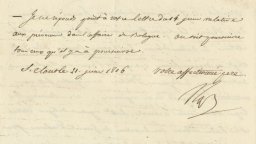 Je ne réponds point à votre lettre du 14 juin relative
aux prévenus dans l'affaire de Bologne. on doit poursuivre
tous ceux qu'il y a à poursuivre.
S. Cloud le 21 juin 1806
votre affectionné père